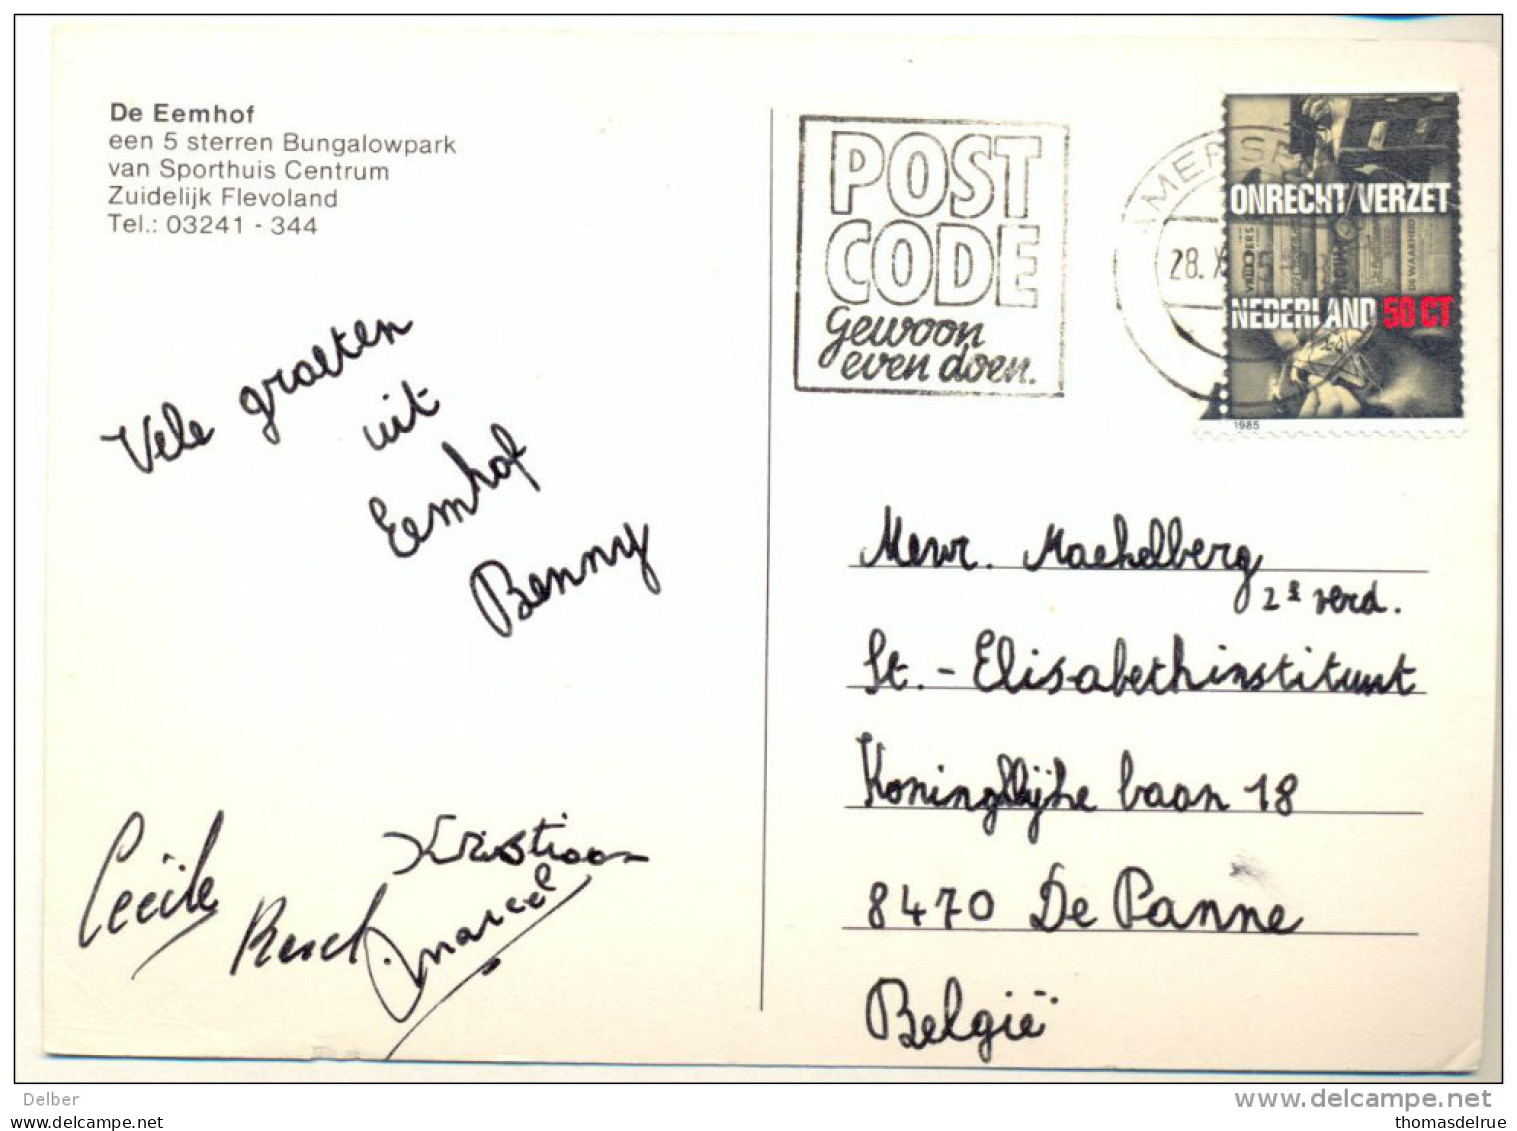 De Eemhof
een 5 sterren Bungalowpark
van Sporthuis Centrum
Zuidelijk Flevoland
Tel.: 03241 - 344
Vele groeten
uit
Eemhof
Benny
Cecile
Kristiaan
Marcel
POST
CODE
gewoon
even doen.
AMERSF
28. X
ONRECHT/VERZET
DE WAARHEID
NEDERLAND 50 CT
1985
Mevr. Machelberg
2e verd.
St.- Elisabethinstituut
Koninglijke baan 18
8470 De Panne
België
Delber
www.delcampe.net
www.delcampe.net
thomasdelrue